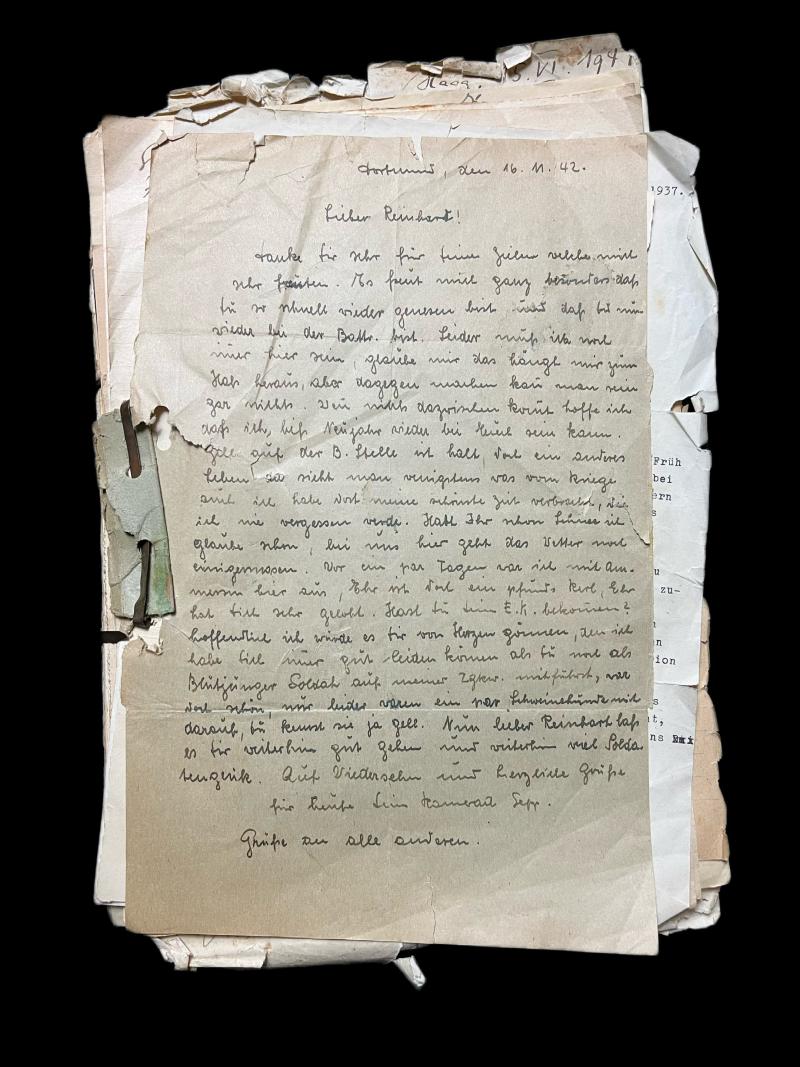 Haag.
15. VI. 1941
1937.
Dortmund, den 16. 11. 42.
Lieber Reinhart!
Danke Dir sehr für Deine Zeilen welche mich
sehr freuten. Es freut mich ganz besonders daß
Du so schnell wieder genesen bist, und daß Du nun
wieder bei der Battr. bist. Leider muß ich noch
imer hier sein, glaube mir das hängt mir zum
Hals heraus, aber dagegen machen kan man sein
gar nichts. Wen nichts dazwischen komt hoffe ich
daß ich, biß Neujahr wieder bei Euch sein kann.
auf der B. Stelle ist halt doch ein anderes
Leben da sieht man wenigstens was vom Kriege
auch ich habe dort meine schönste Zeit verbracht, die
ich nie vergessen werde. Habt Ihr schon Schnee ich
glaube schon, bei uns hier geht das Wetter noch
einigermassen. Vor ein par Tagen war ich mit Am-
mern hier aus, Ehr ist doch ein pfunds Kerl, Ehr
hat Dich sehr gelobt. Hast Du Dein E.K. bekommen?
hoffendlich ich würde es Dir von Herzen gönnen, den ich
habe Dich imer gut leiden können als Du noch als
Blutjunger Soldat auf meiner Zgkw. mitfuhrst, war
doch schön, nur leider waren ein par Schweinehunde mit
darauf, Du kennst sie ja gell. Nun lieber Reinhart laß
es Dir weiterhin gut gehen und weiterhin viel Solda
tenglück. Auf Wiedersehn und herzliche Grüße
für heute Dein Kamerad Sepp.
Grüße an alle anderen.
Früh
bei
ern
s
u
zu-
n
en
ion
s
t,
ns